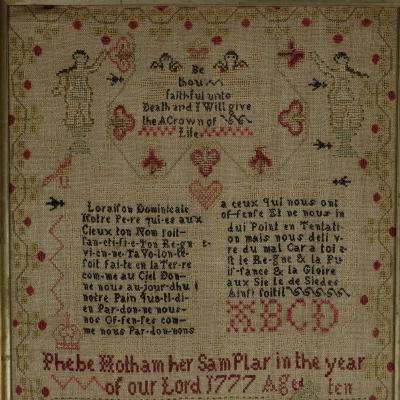 Be
thou
faithful unto
Death and I Will give
the A Crown of
Life
Loraison Dominicale
Notre Pe-re qui-es aux
Cieux ton Nom soit
san-cti-fi-e Ton Re-gn e
vi-en-ne Ta Vo-lon-te
soit fai-te en la Ter-re
com-me au Ciel Don-
ne nous au-jour-dhu i
notre Pain Quo-ti-di-
en Par-don-ne nous-
nos Of-fen-ses com-
me nous Par-don-nons
a ceux qui nous ont
of-fense Et ne nous in
dui Point en Tentati
on mais nous deli v
re du mal Car a toi e
st le Re-gne & la Pu
is-sance & la Gloire
aux Sie le de Siedes
Ainsi soitil
ABCD
Phebe Hotham her SamPlar in the year
of our Lord 1777 Aged ten